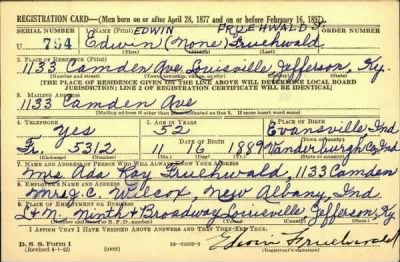 REGISTRATION CARD—(Men born on or after April 28, 1877 and on or before February 16, 1897)
SERIAL NUMBER 1. NAME (Print) EDWIN FRUEHWALD ORDER NUMBER
U 794 Edwin (None) Fruehwald
(First) (Middle) (Last)
2. PLACE OF RESIDENCE (Print)
1133 Camden Ave Louisville, Jefferson, Ky.
(Number and street) (Town, township, village, or city) (County) (State)
[THE PLACE OF RESIDENCE GIVEN ON THE LINE ABOVE WILL DETERMINE LOCAL BOARD
JURISDICTION; LINE 2 OF REGISTRATION CERTIFICATE WILL BE IDENTICAL]
3. MAILING ADDRESS
1133 Camden Ave
[Mailing address if other than place indicated on line 2. If same insert word same]
4. TELEPHONE 5. AGE IN YEARS 6. PLACE OF BIRTH
Yes 52 Evansville Ind
DATE OF BIRTH
5312 11 6 1889 Vanderburgh Co Ind
(Exchange) (Number) (Mo.) (Day) (Yr.) (State or country)
7. NAME AND ADDRESS OF PERSON WHO WILL ALWAYS KNOW YOUR ADDRESS
Mrs Ada Kay Fruehwald, 1133 Camden
8. EMPLOYER'S NAME AND ADDRESS
C. Wilcox, New Albany, Ind.
9. PLACE OF EMPLOYMENT OR BUSINESS
L+N. Ninth + Broadway Louisville Jefferson, Ky
(Number and street or R. F. D. number) (Town) (County) (State)
I AFFIRM THAT I HAVE VERIFIED ABOVE ANSWERS AND THAT THEY ARE TRUE.
D. S. S. Form 1
(Revised 4-1-42) (over) Edwin Fruehwald
(Registrant's signature)